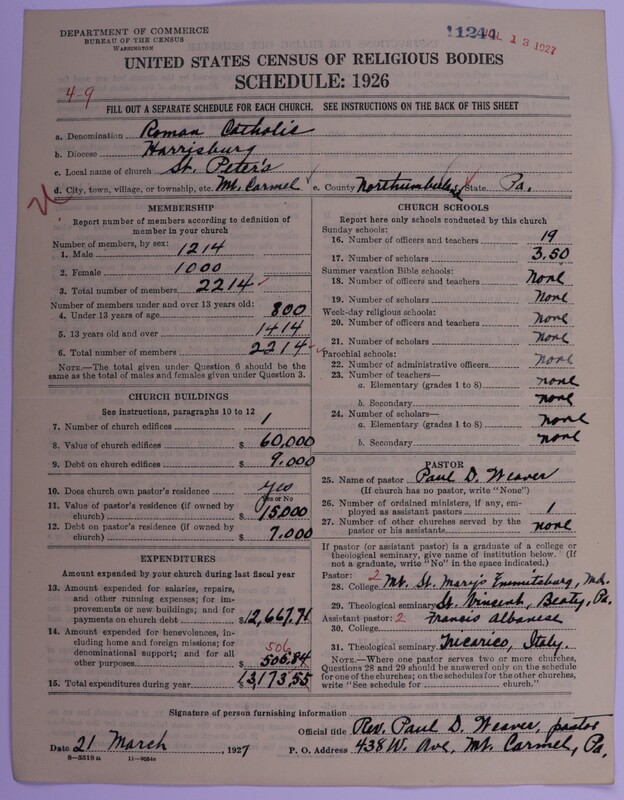 DEPARTMENT OF COMMERCE
BUREAU OF THE CENSUS
WASHINGTON
11244 JUL 13 1927
UNITED STATES CENSUS OF RELIGIOUS BODIES
SCHEDULE: 1926
4-9
FILL OUT A SEPARATE SCHEDULE FOR EACH CHURCH. SEE INSTRUCTIONS ON THE BACK OF THIS SHEET
a. Denomination Roman Catholic
b. Diocese Harrisburg
c. Local name of church St. Peter's
d. City, town, village, or township, etc. Mt. Carmel e. County Northumberland State Pa.
MEMBERSHIP
Report number of members according to definition of
member in your church
Number of members, by sex:
1. Male 1214
2. Female 1000
3. Total number of members 2214
Number of members under and over 13 years old:
4. Under 13 years of age 800
5. 13 years old and over 1414
6. Total number of members 2214
NOTE.—The total given under Question 6 should be
same as the total of males and females given under Question 3.
CHURCH BUILDINGS
See instructions, paragraphs 10 to 12
7. Number of church edifices 1
8. Value of church edifices $ 60,000
9. Debt on church edifices $ 9.000
10. Does church own pastor's residence yes
Yes or No
11. Value of pastor's residence (if owned by
church) $ 15,000
12. Debt on pastor's residence (if owned by
church) $ 7.000
EXPENDITURES
Amount expended by your church during last fiscal year
13. Amount expended for salaries, repairs,
and other running expenses; for im-
provements or new buildings; and for
payments on church debt $ 12,667.71
14. Amount expended for benevolences, in-
cluding home and foreign missions; for
denominational support; and for all 506
other purposes $ 505.84
15. Total expenditures during year $ 13,173.55
CHURCH SCHOOLS
Report here only schools conducted by this church
Sunday schools:
16. Number of officers and teachers 19
17. Number of scholars 3.50
Summer vacation Bible schools:
18. Number of officers and teachers none
19. Number of scholars none
Week-day religious schools:
20. Number of officers and teachers none
21. Number of scholars none
Parochial schools:
22. Number of administrative officers none
23. Number of teachers—
a. Elementary (grades 1 to 8) none
b. Secondary none
24. Number of scholars—
a. Elementary (grades 1 to 8) none
b. Secondary none
PASTOR
25. Name of pastor Paul D. Weaver
(If church has no pastor, write "None")
26. Number of ordained ministers, if any, em-
ployed as assistant pastors 1
27. Number of other churches served by the
pastor or his assistants none
If pastor (or assistant pastor) is a graduate of a college or
theological seminary, give name of institution below. (If
not a graduate, write "No" in the space indicated.)
Pastor: 2
28. College Mt. St. Mary's Emmitsburg, Md.
29. Theological seminary St. Vinsent, Beaty, Pa.
Assistant pastor: 2 Fransis Albanese
30. College
31. Theological seminary Italy.
NOTE.—Where one pastor serves two or more churches,
Questions 28 and 29 should be answered only on the schedule
for one of the churches; on the schedules for the other churches,
write "See schedule for church."
Signature of person furnishing information
Official title Rev. Paul D. Weaver, pastor
Date 21 March, 1927 P. O. Address 438 W. Ave, Mt. Carmel, Pa.
8—5518 a